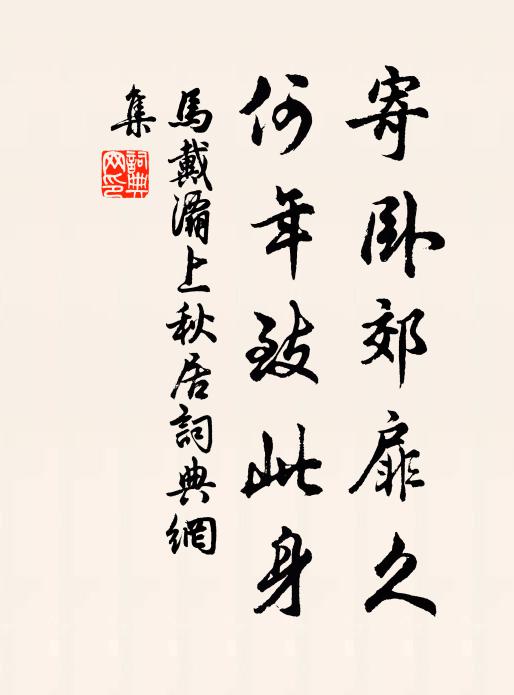 寄卧郊扉久
何年致此身
馬戴灞上秋居詞典網
集
詞典
网印